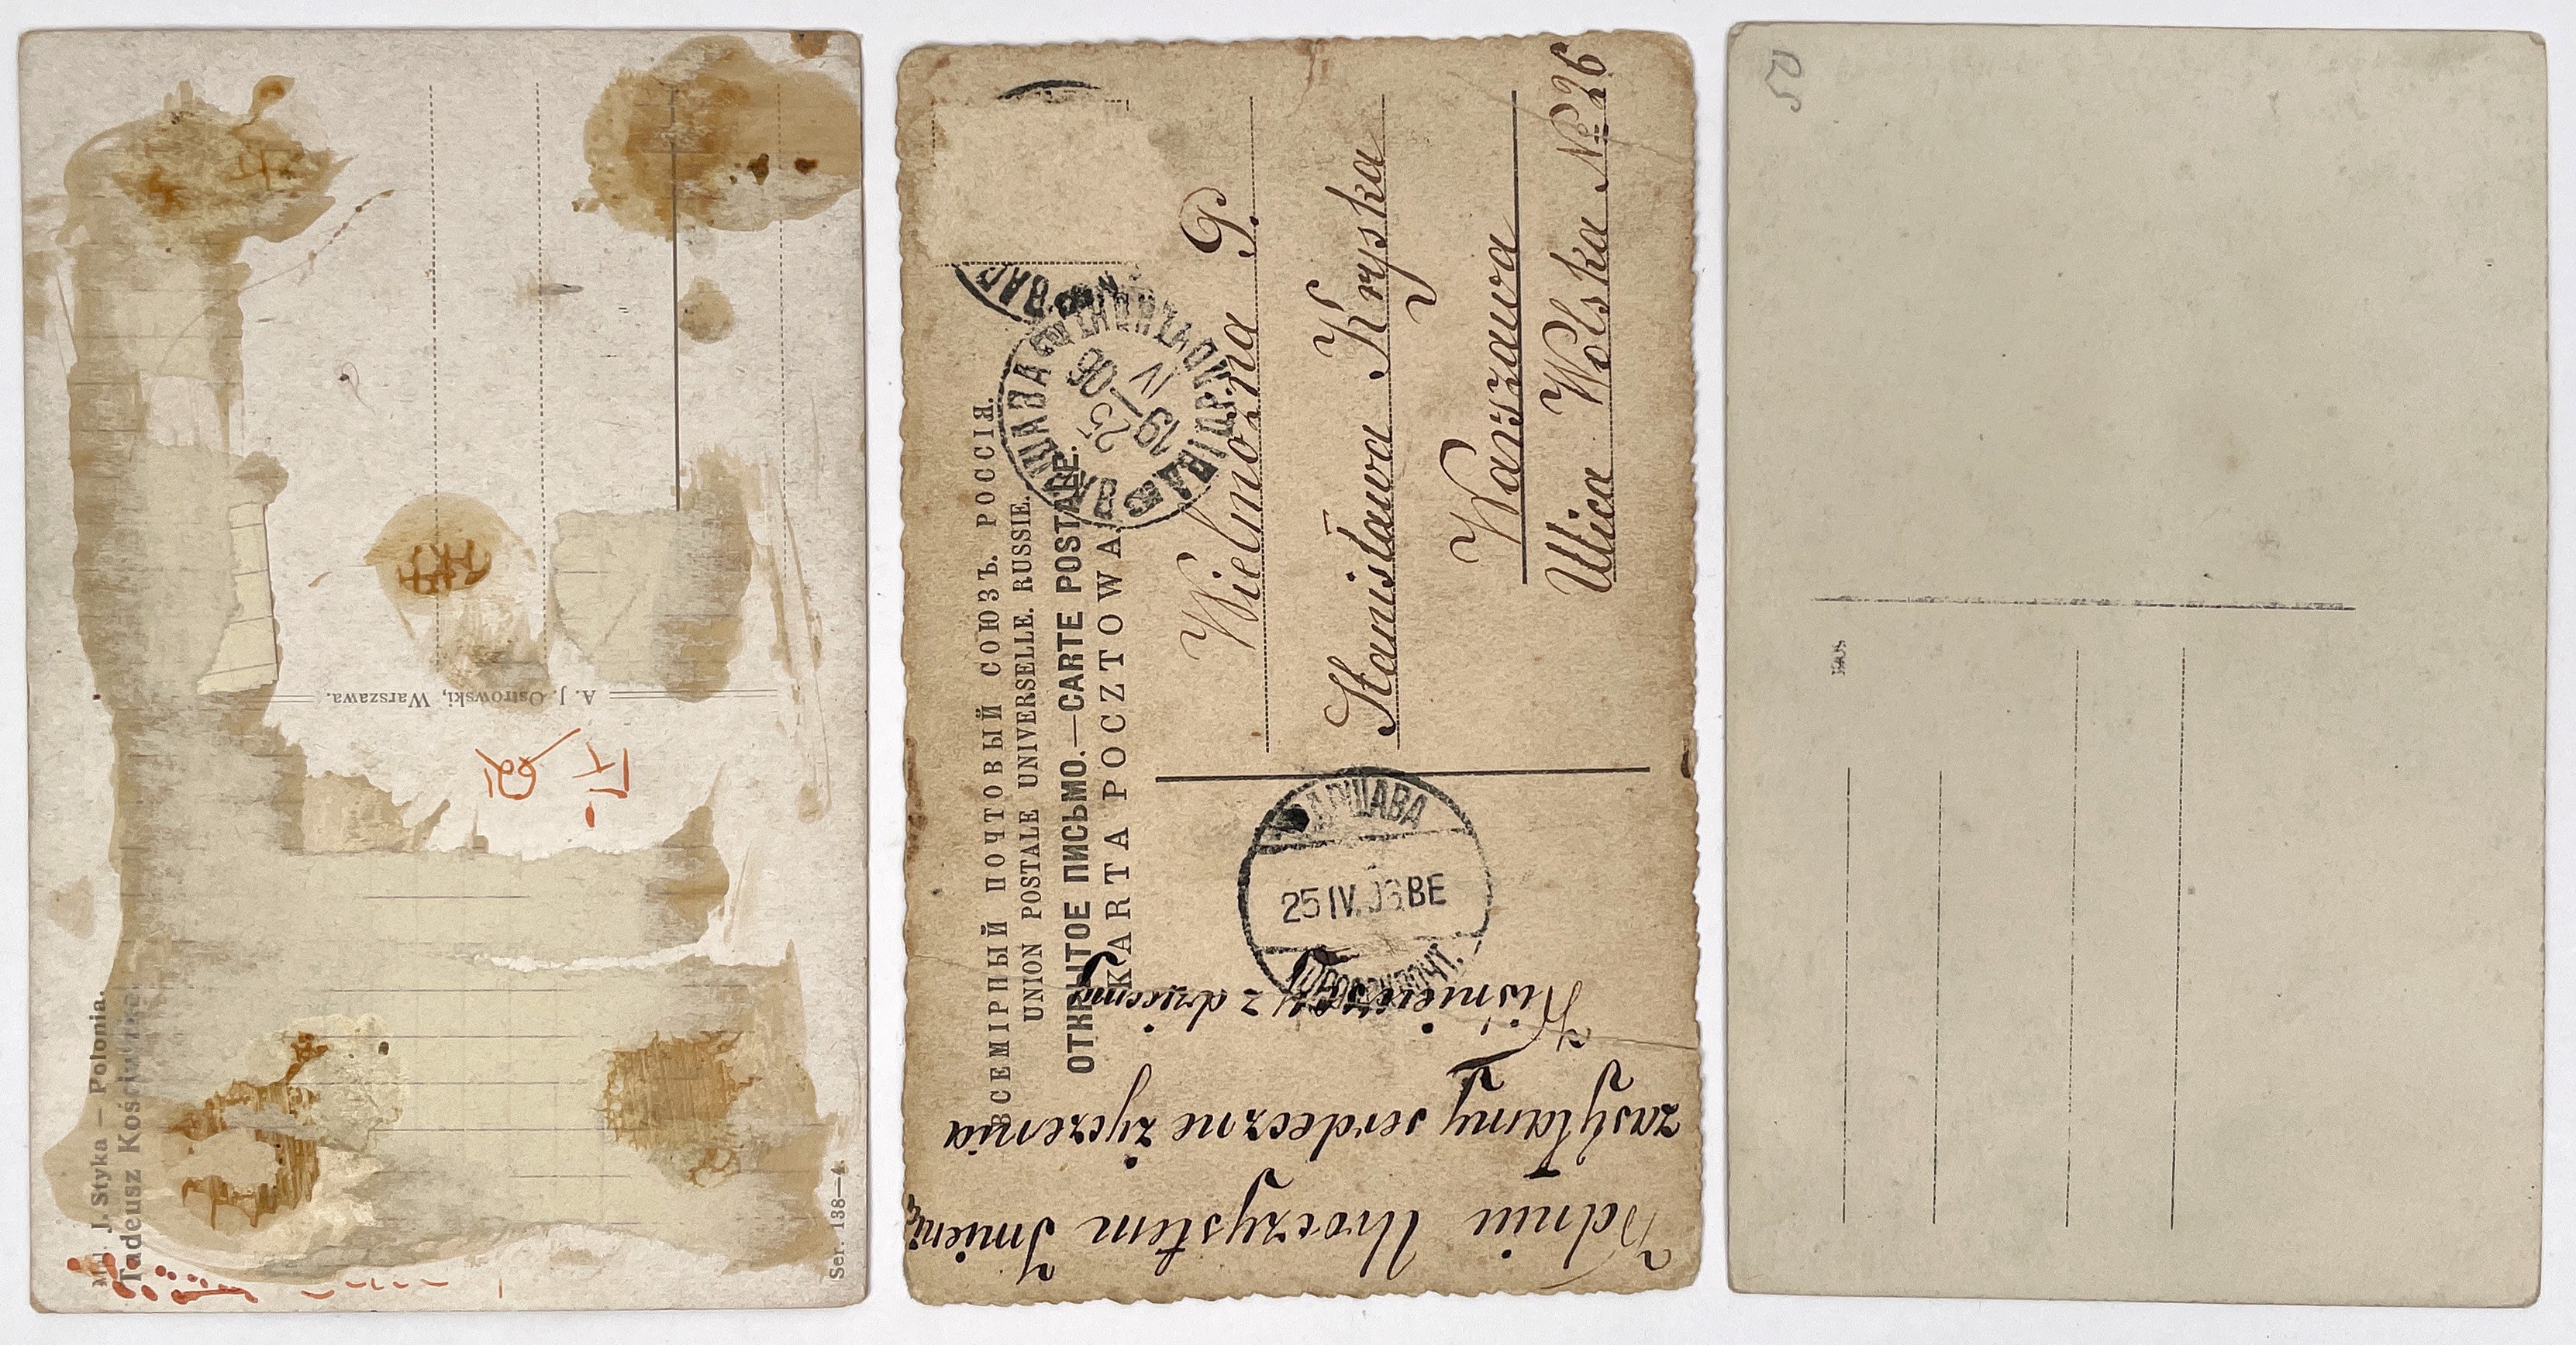 Mal. J. Styka — Polonia.
Tadeusz Kościuszko.
A. J. Ostrowski, Warszawa.
Ser. 138—4.
ВСЕМІРНЫЙ ПОЧТОВЫЙ СОЮЗЪ. РОССІЯ.
UNION POSTALE UNIVERSELLE. RUSSIE.
ОТКРЫТОЕ ПИСЬМО.—CARTE POSTALE.
KARTA POCZTOWA.
Wielmożna P.
Stanisława Kryska
Warszawa
Ulica Wolska № 26
ВАРШАВА
25 IV
19 06
ВАРШАВА
25 IV. 06 ВЕ
W dniu Uroczystem Imienin
zasyłamy serdeczne życzenia
50